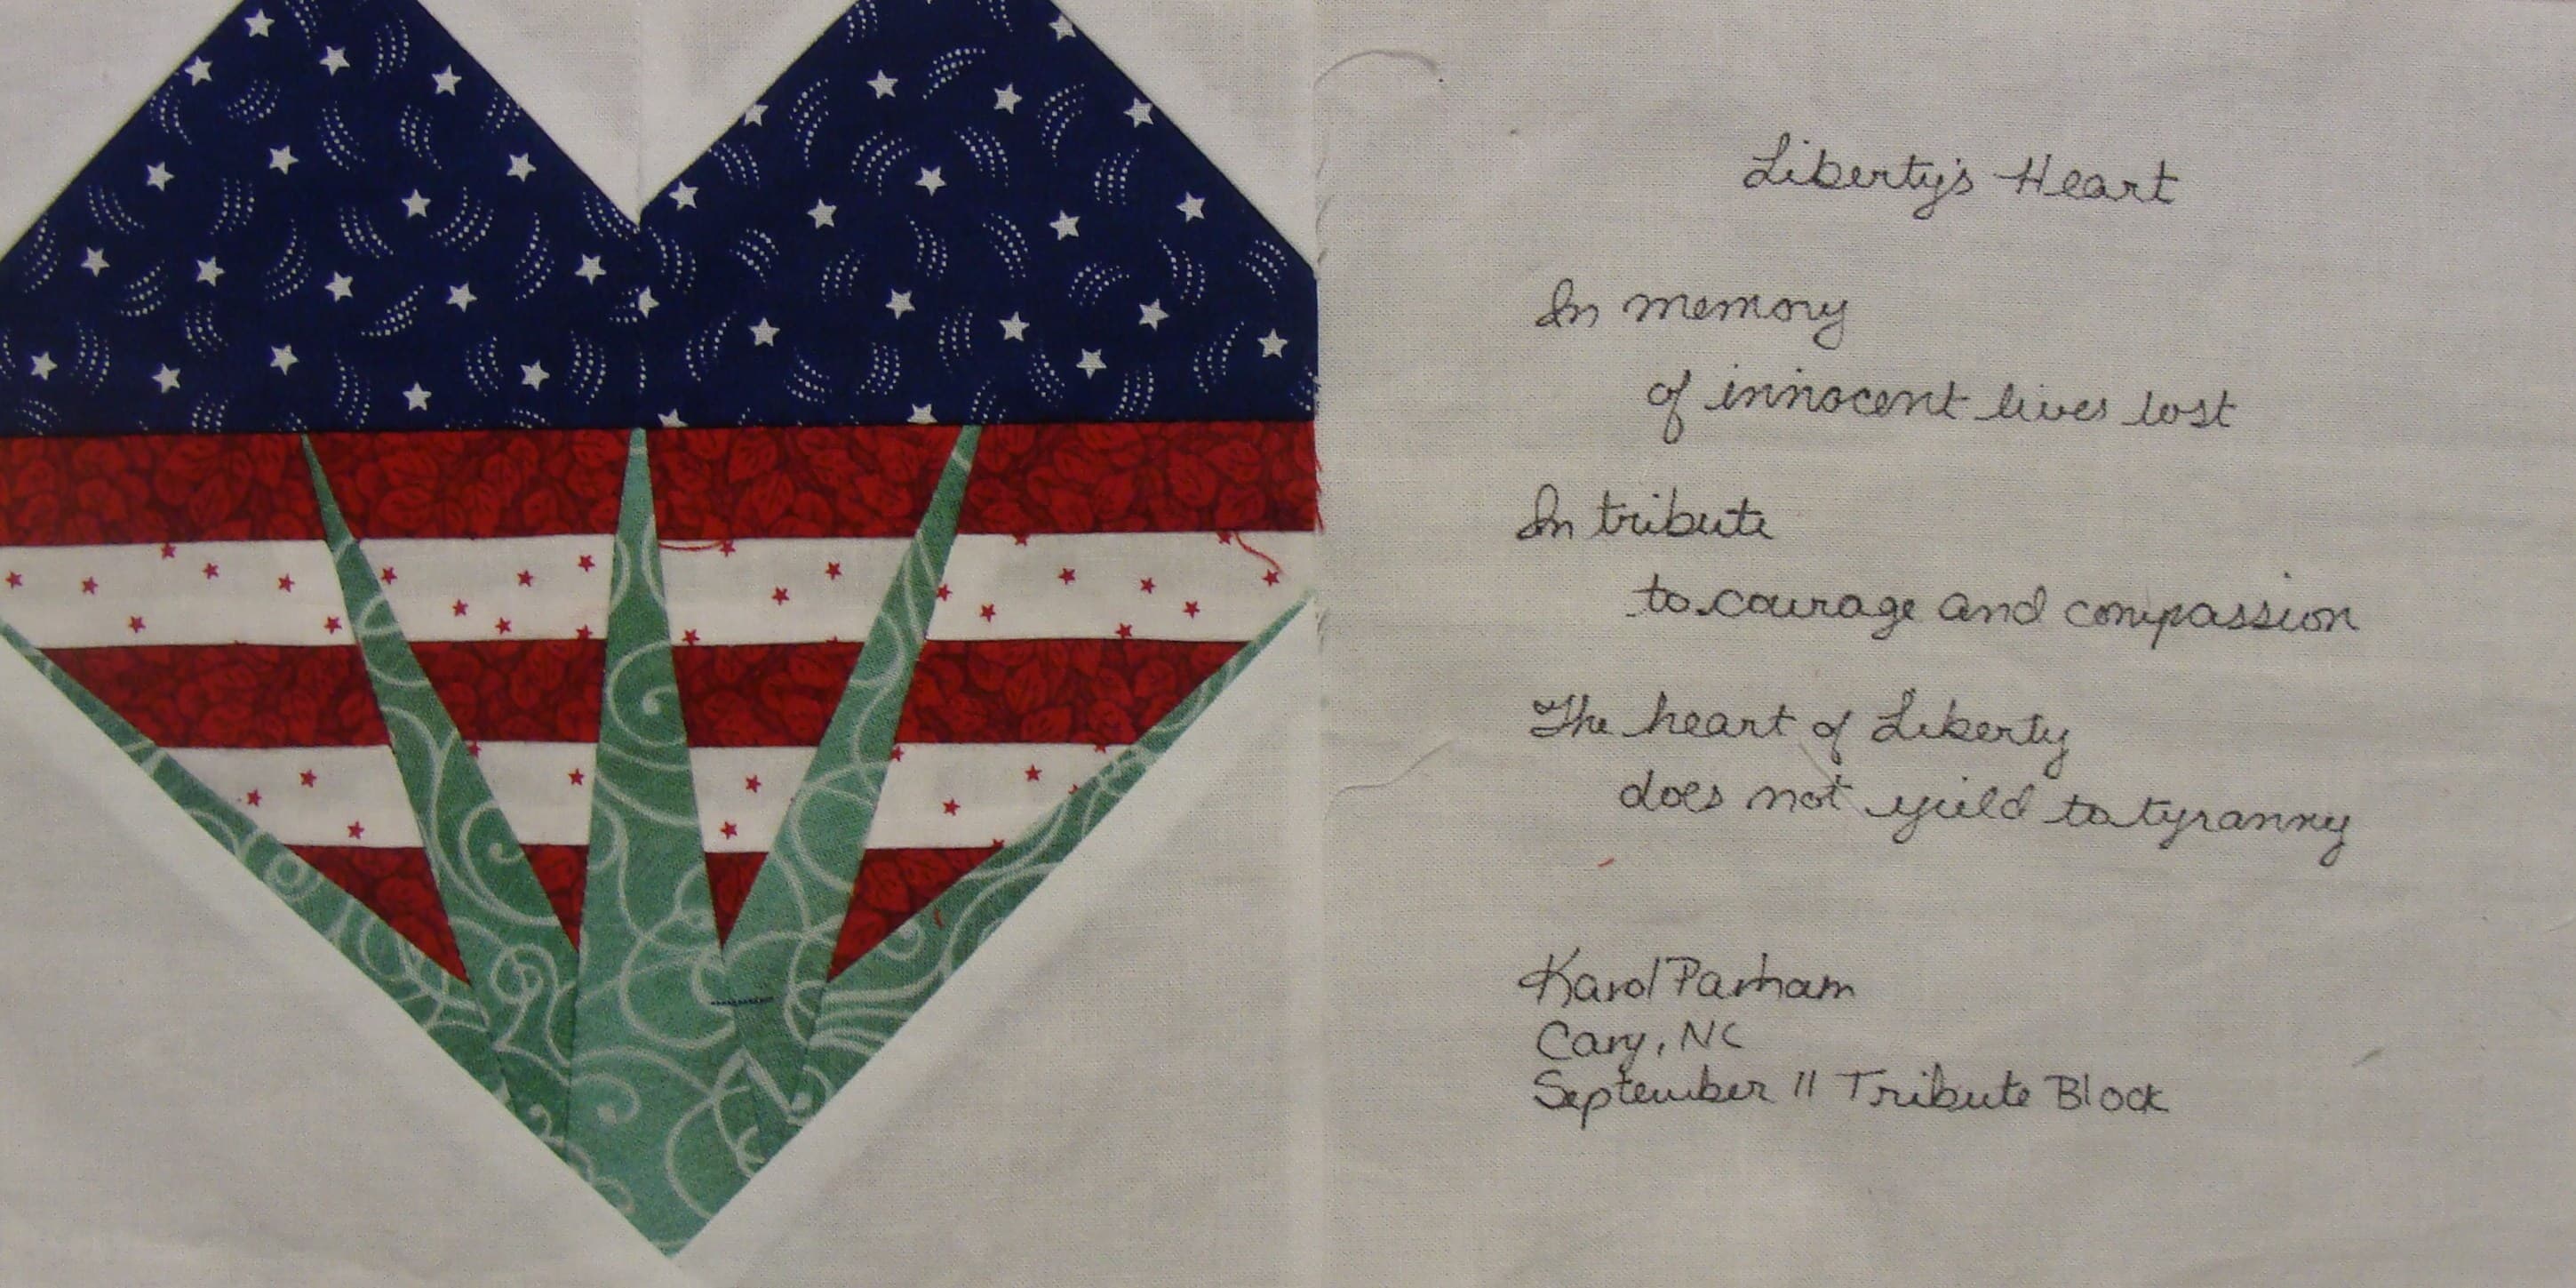 Liberty's Heart
In memory
of innocent lives lost
In tribute
to courage and compassion
The heart of Liberty
does not yield to tyranny
Karol Parham
Cary, NC
September 11 Tribute Block